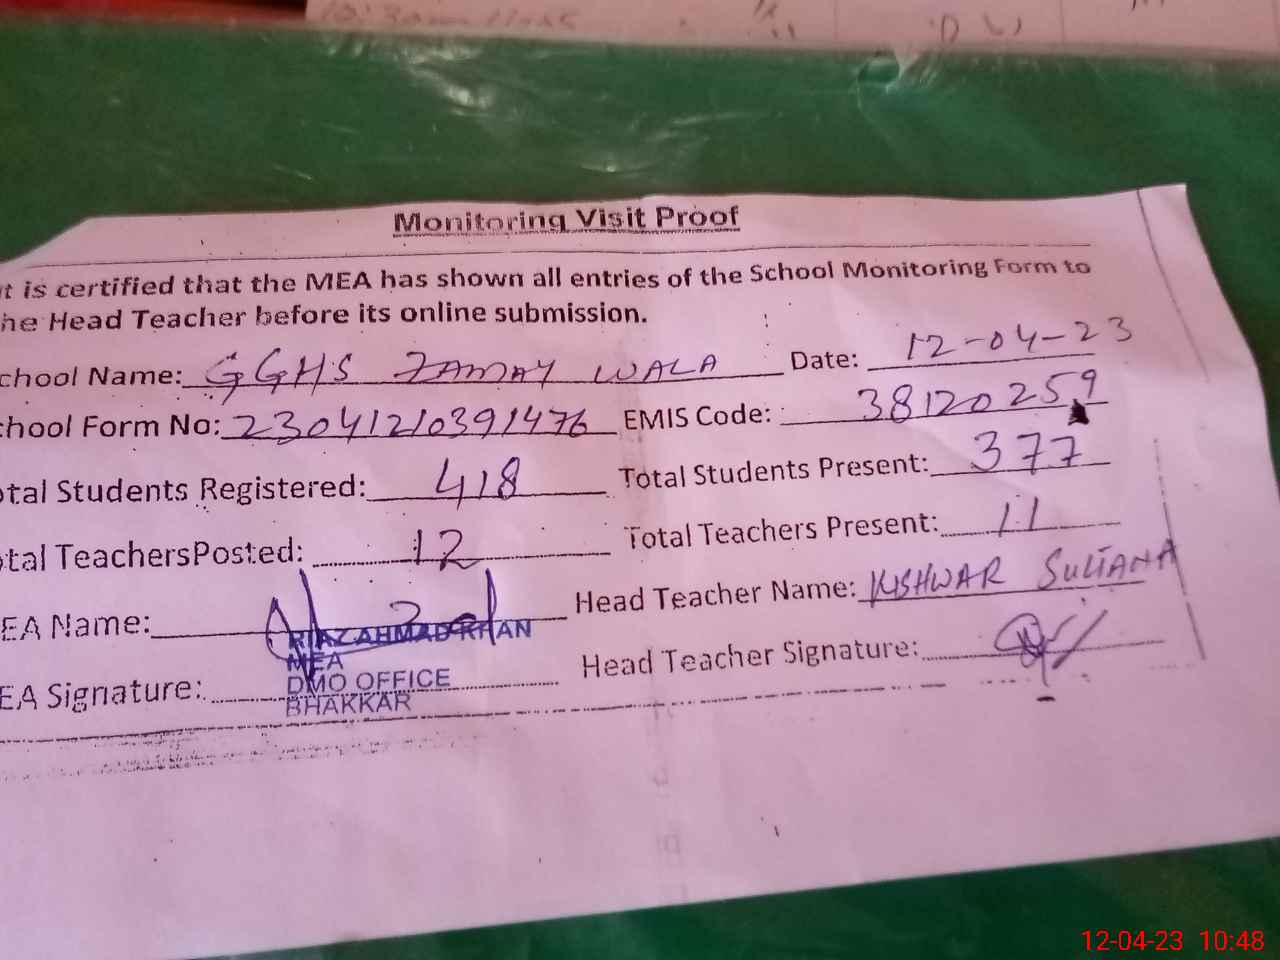 Monitoring Visit Proof
t is certified that the MEA has shown all entries of the School Monitoring Form to
he Head Teacher before its online submission.
chool Name: GGHS ZAMAY WALA Date: 12-04-23
chool Form No: 23041210391476 EMIS Code: 38120259
otal Students Registered: 418 Total Students Present: 377
otal TeachersPosted: 12 Total Teachers Present: 11
EA Name: Head Teacher Name: KISHWAR SULTANA
RIAZ AHMAD KHAN
MEA
EA Signature: DMO OFFICE Head Teacher Signature:
BHAKKAR
12-04-23 10:48